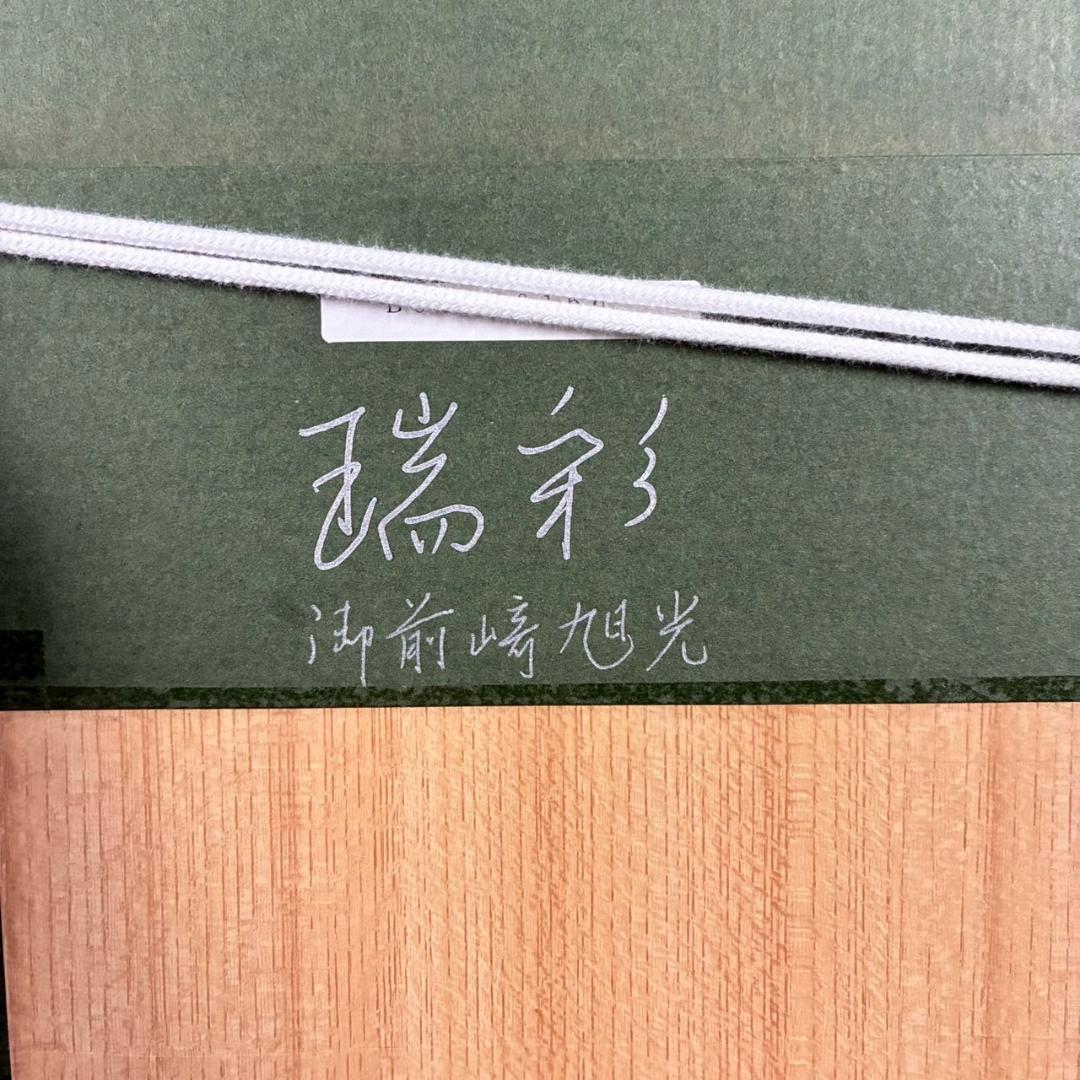 瑞彩
御前﨑旭光